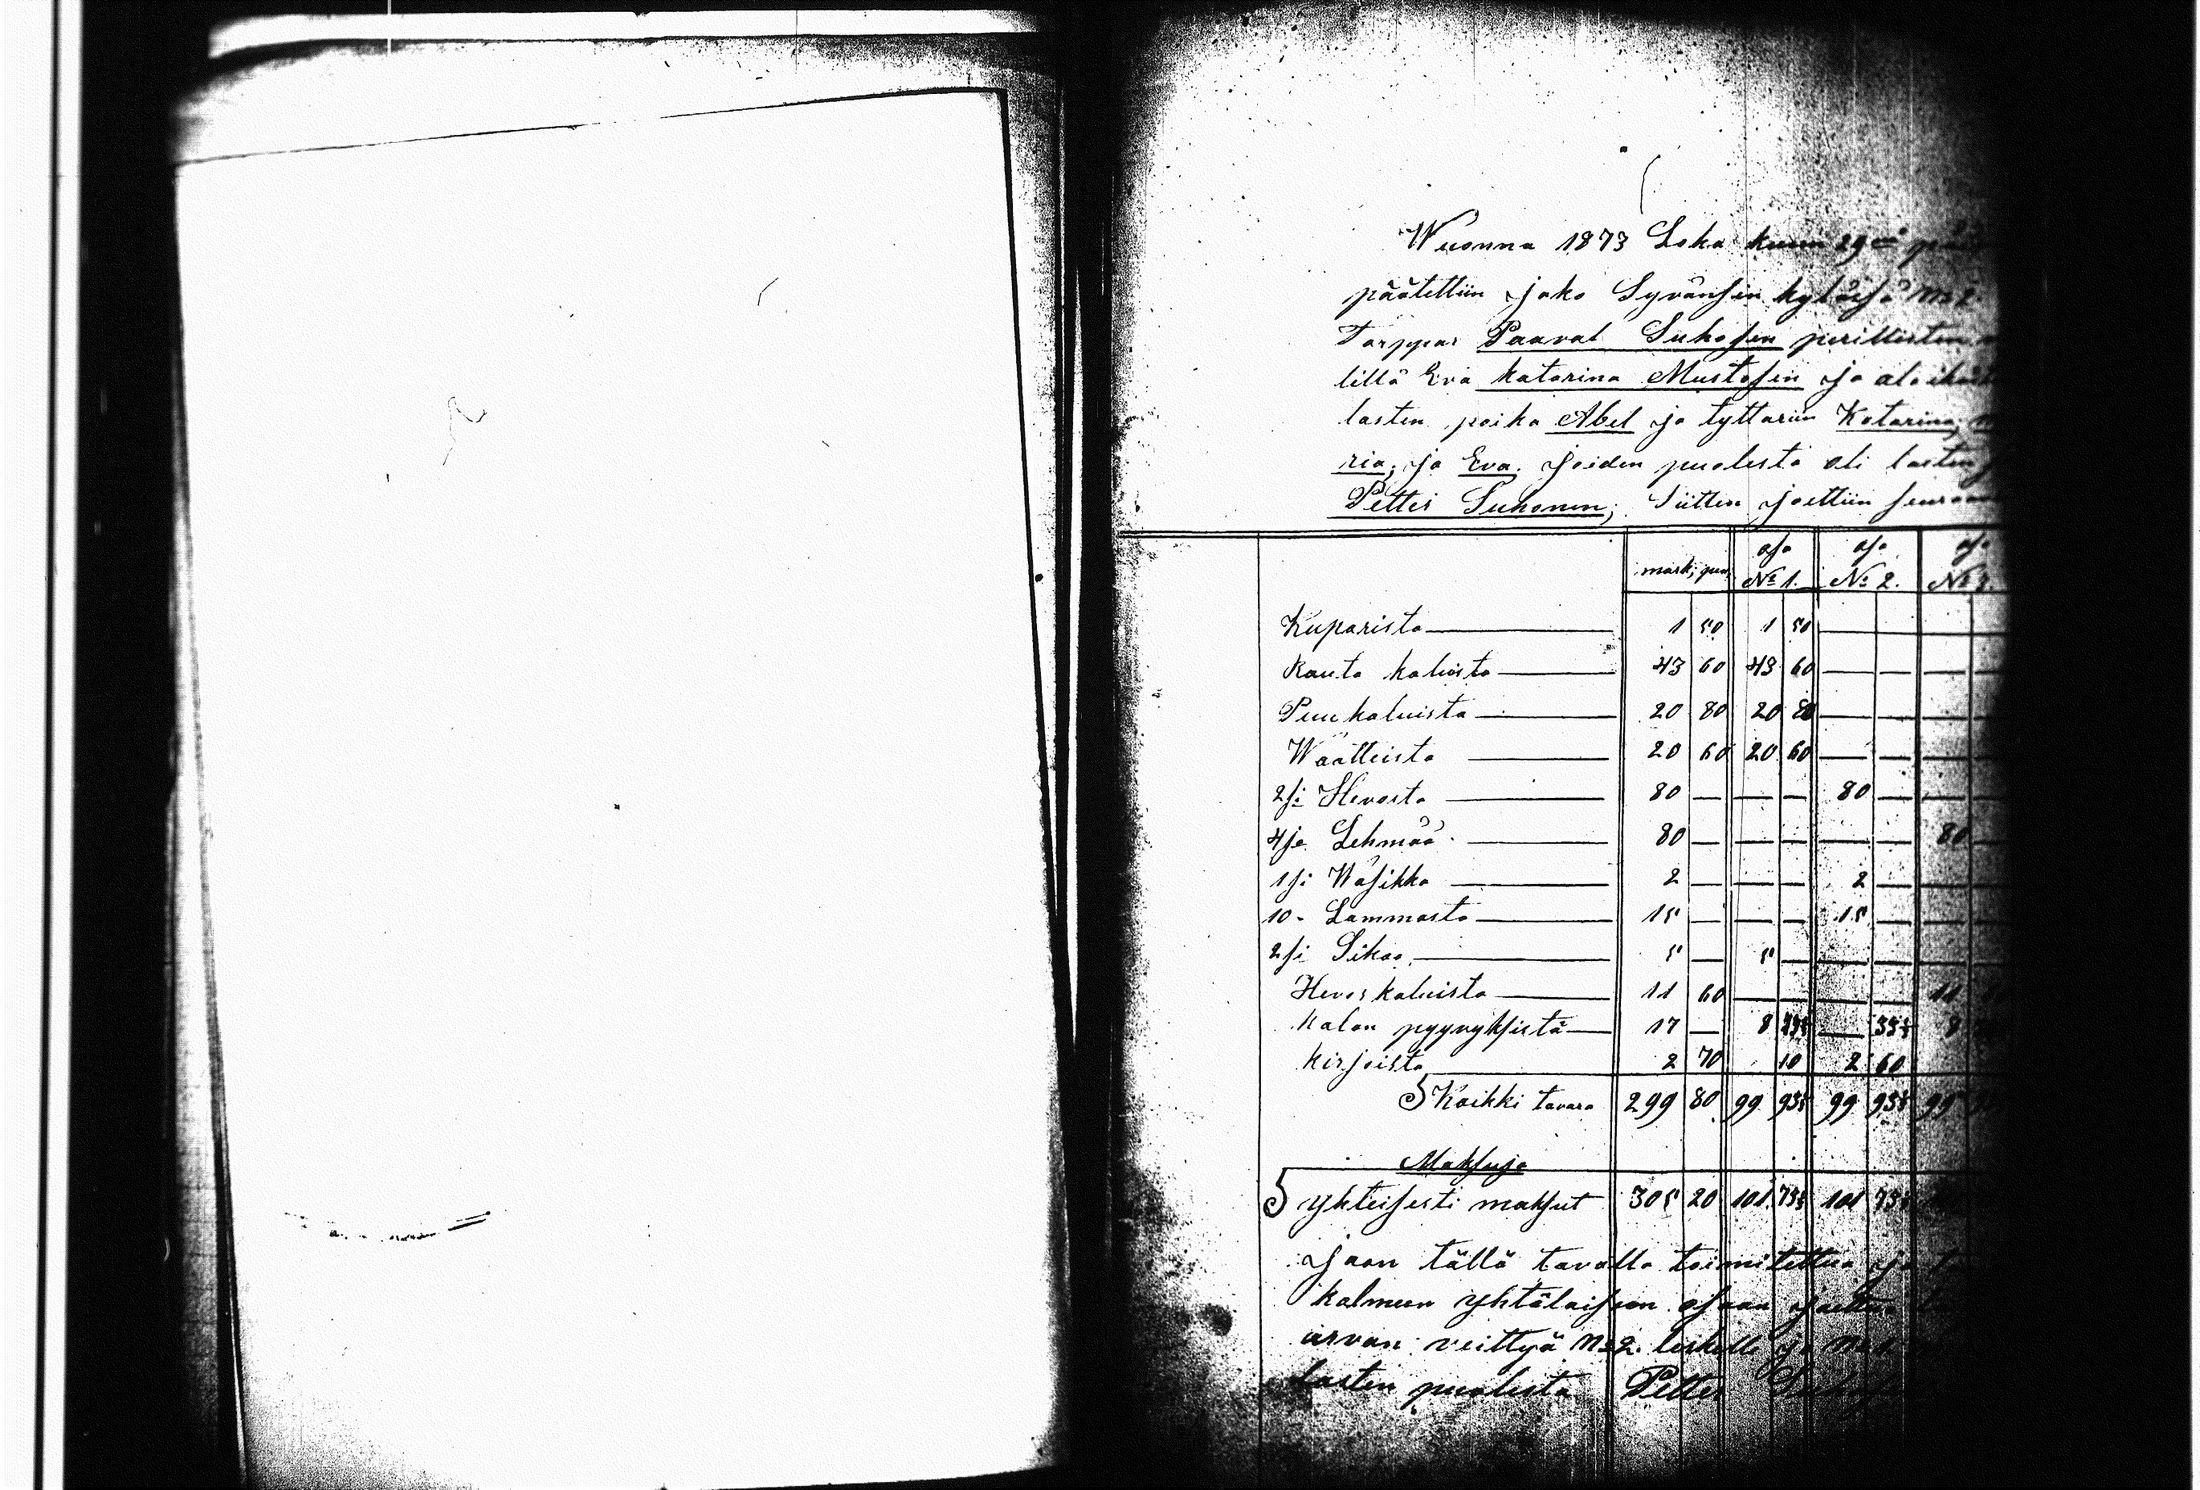 Wuonna 1873 Loka kuun 29
päätettiin jako Syvänsin kyläisä No 2.
Torppar Paaval Suhosen perillisten
lillä Eva Katarina Mustosen ja
lasten poika Abel ja tyttariin Katarina,
ria; ja Eva. joiden puolesta oli lasten
Petter Suhonen; Siitten joettiin
mark; pen. osa No 1. osa No 2. osa No 3.
Kuparista 1 50 1 50 — —
Rauta kaluista 43 60 43 60 — — — —
Puu kaluista 20 80 20 80 — — — —
Wäätteista 20 60 20 60 — — — —
2si Hevosta 80 — — — 80 — — —
4ja Lehmää 80 — — — — — 80 —
1si Wäsikka 2 — — — 2 — — —
10 - Lammasta 15 — — — 15 — — —
2si Sikaa 5 — 5 — — — — —
Hevos kaluista 11 60 — — — — 11
Kalan pyyvyksistä 17 — 8 33⅓ — 33⅓ 8
Kirjoista 2 70 10 2 60
Kaikki tavara 299 80 99 93⅓ 99 93⅓ 99
Maksuja
Yhteisesti maksut 305 20 101 73⅓ 101 73⅓
Jaon tällä tavalla toimitettua ja
kolmeen yhtälaiseen osaan
arvan veittyä No 2. leskelle ja No 1.
lasten puolesta Petter